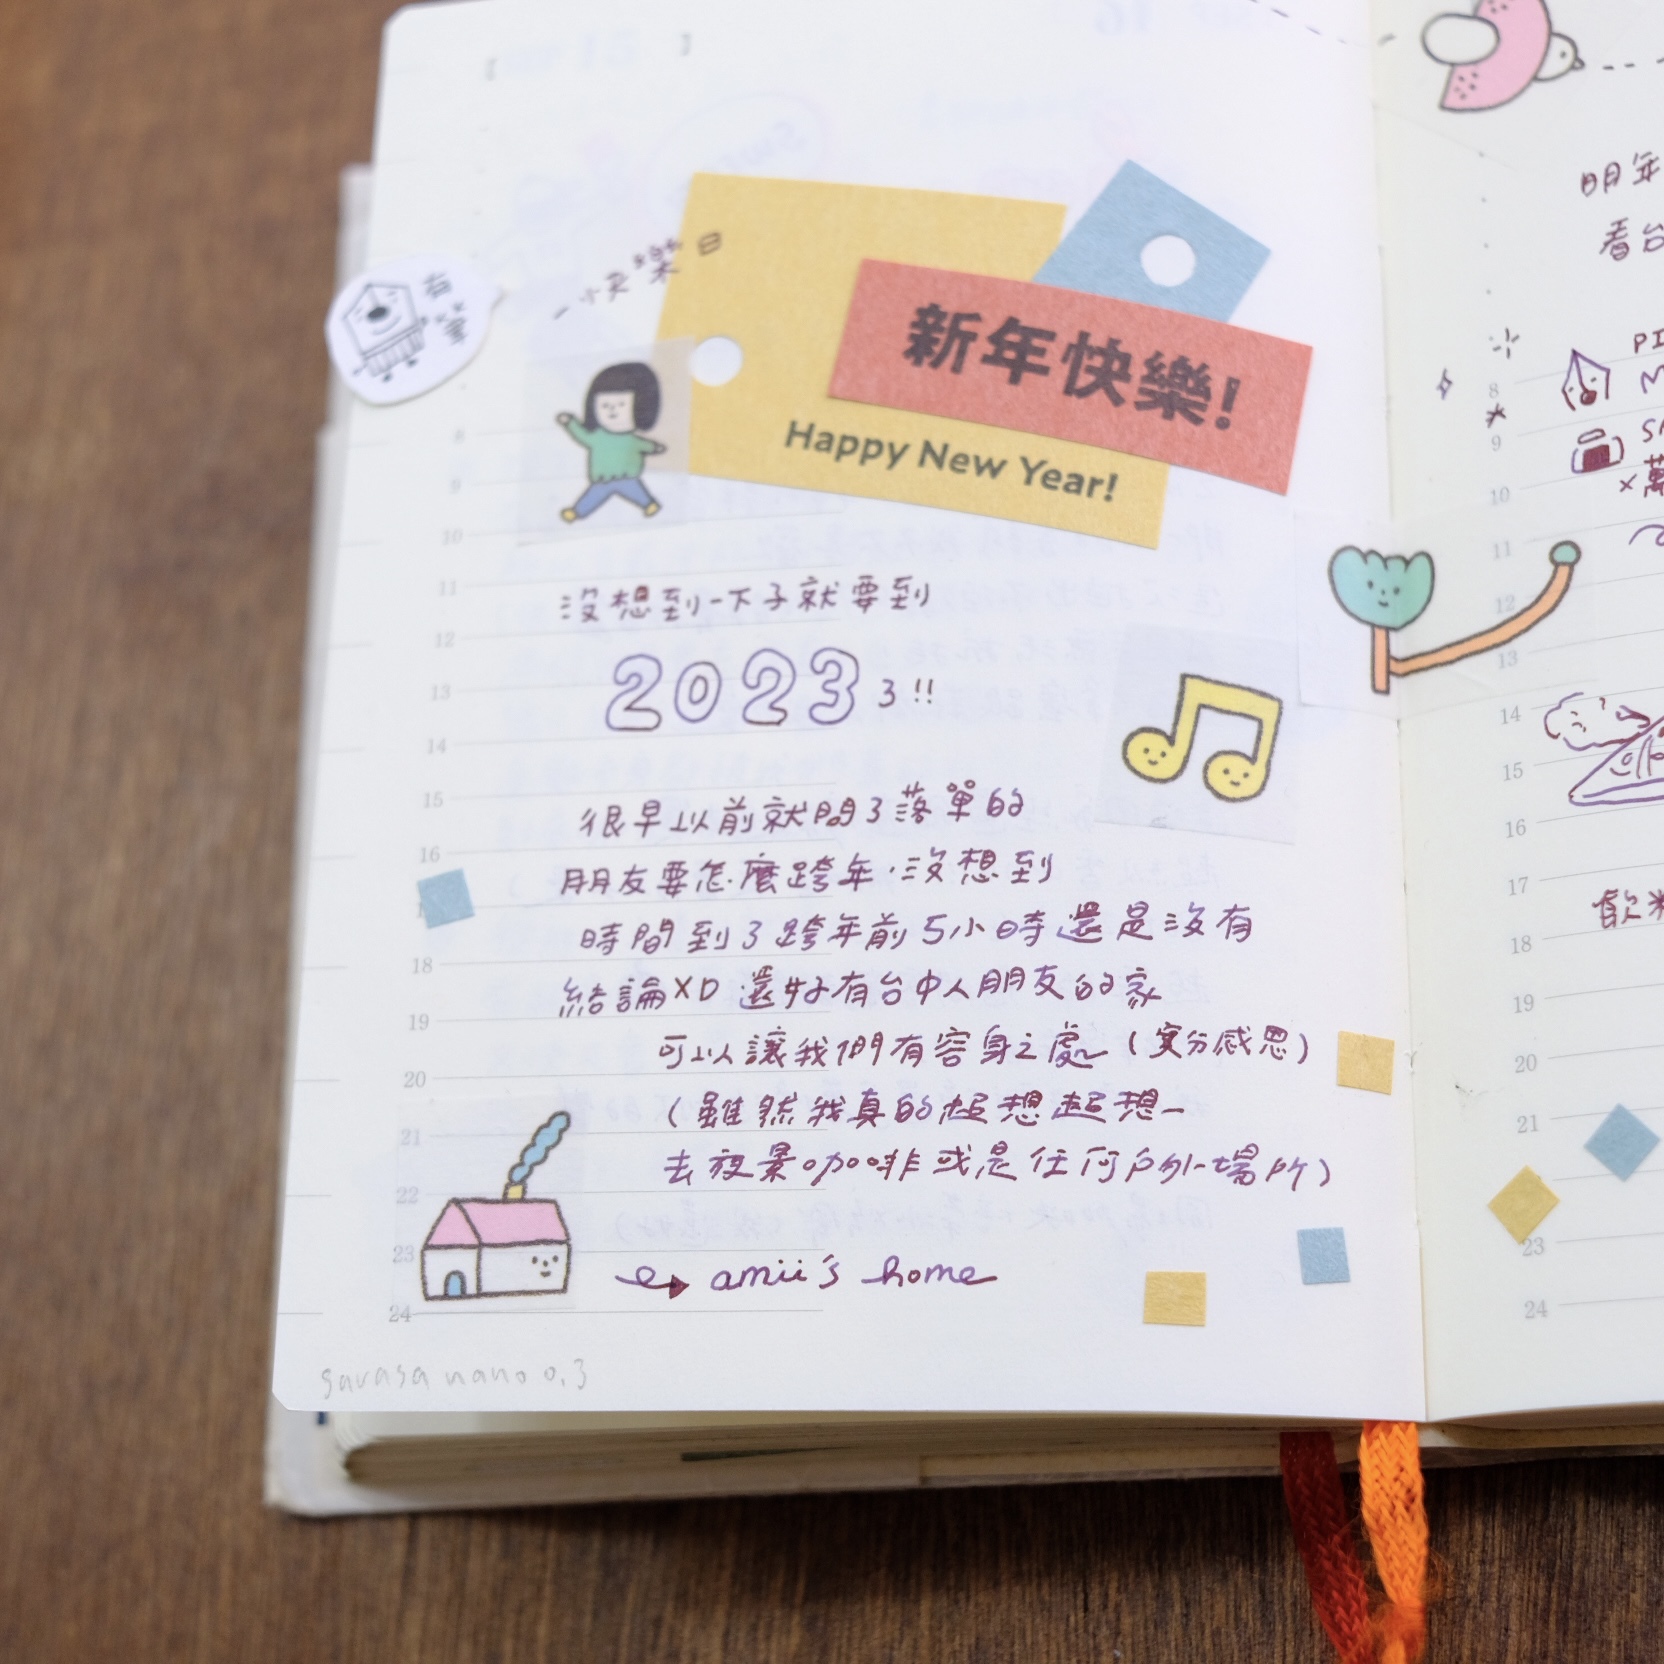 有筆
快樂日
新年快樂!
Happy New Year!
沒想到一下子就要到
2023了!!
很早以前就問了落單的
朋友要怎麼跨年,沒想到
時間到了跨年前5小時還是沒有
結論XD 還好有台中人朋友的家
可以讓我們有容身之處(實分感恩)
(雖然我真的超想超想
去夜景咖啡或是任何戶外場所)
amii's home
sarasa nano 0.3
8
9
10
11
12
13
14
15
16
18
19
20
21
22
23
24
明年
看台
PI
M
SA
×萬
飲料
8
9
10
11
12
13
14
15
16
17
18
19
20
21
23
24